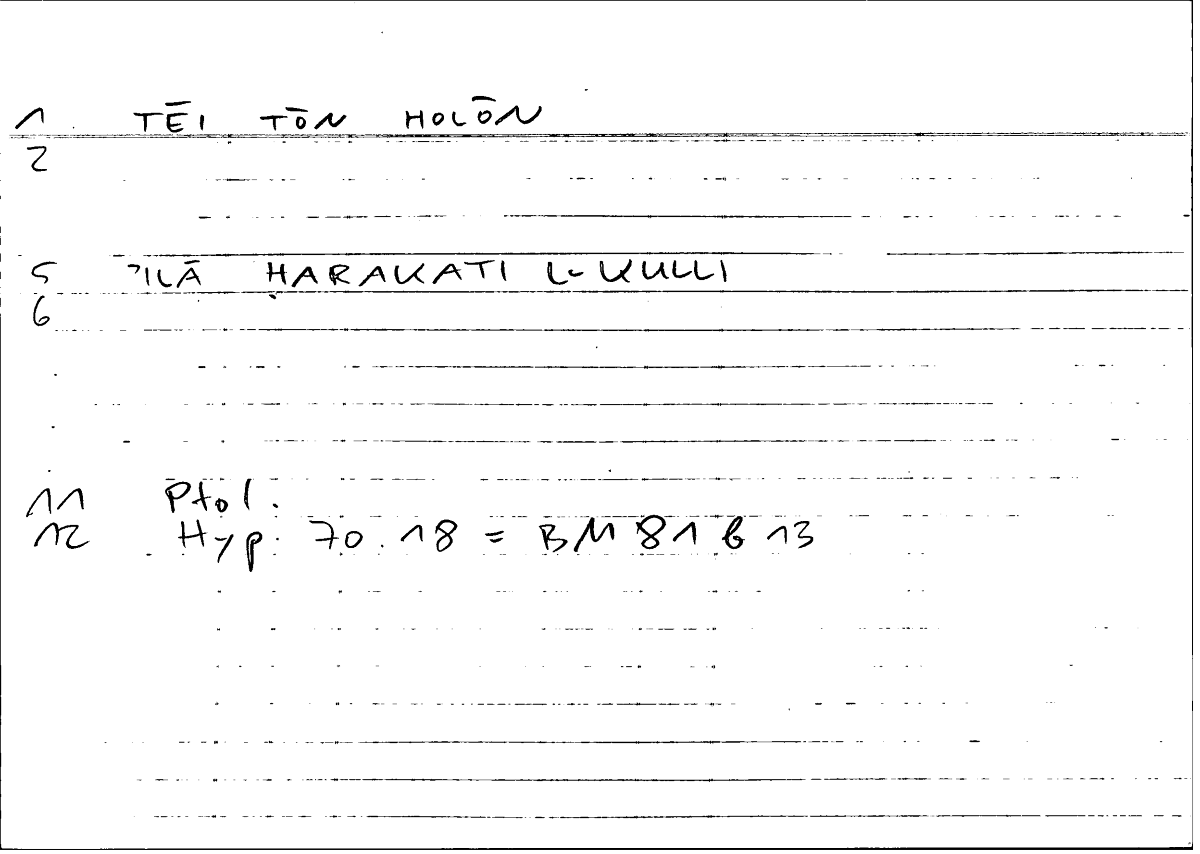 1 TĒI TŌN HOLŌN
2
5 ʾILĀ ḤARAKATI L-KULLI
6
11 Ptol.
12 Hyp. 70.18 = BM 81 b 13